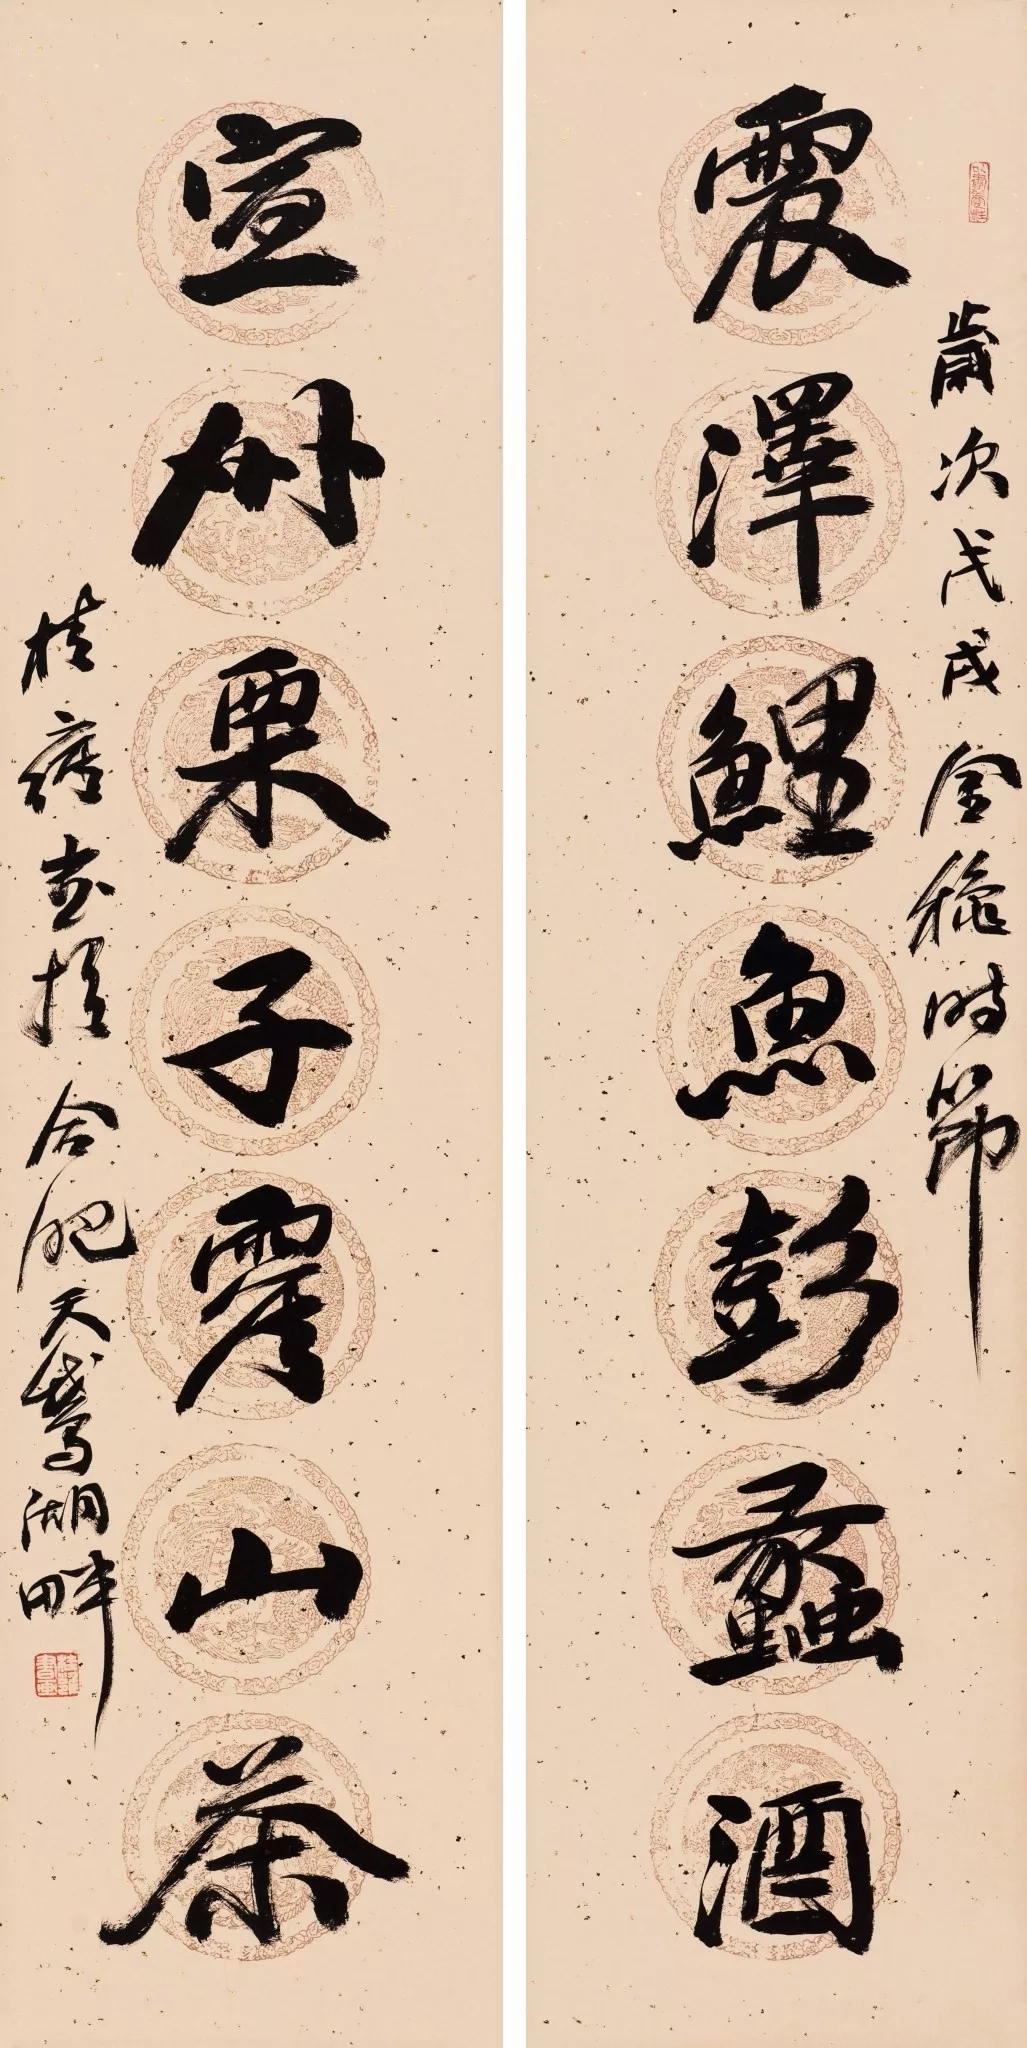 歲次戊戌金秋時節
震澤鯉魚彭蠡酒
宣州栗子霍山茶
桂雍書於合肥天鵝湖畔